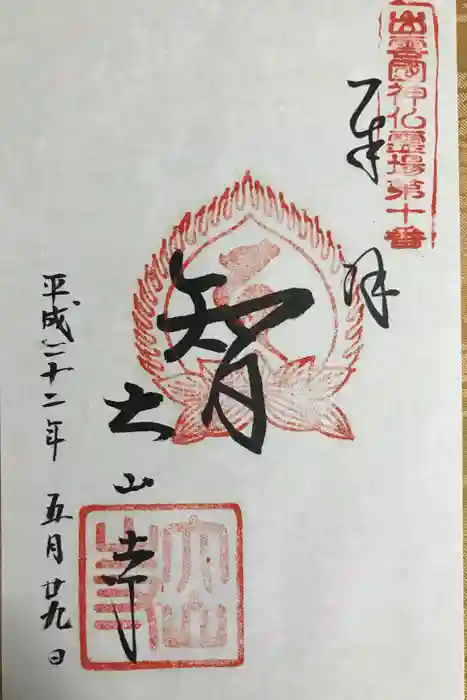 出雲國神仏霊場第十番
奉拝
智
大山寺
平成二十二年 五月廿九日
大山寺